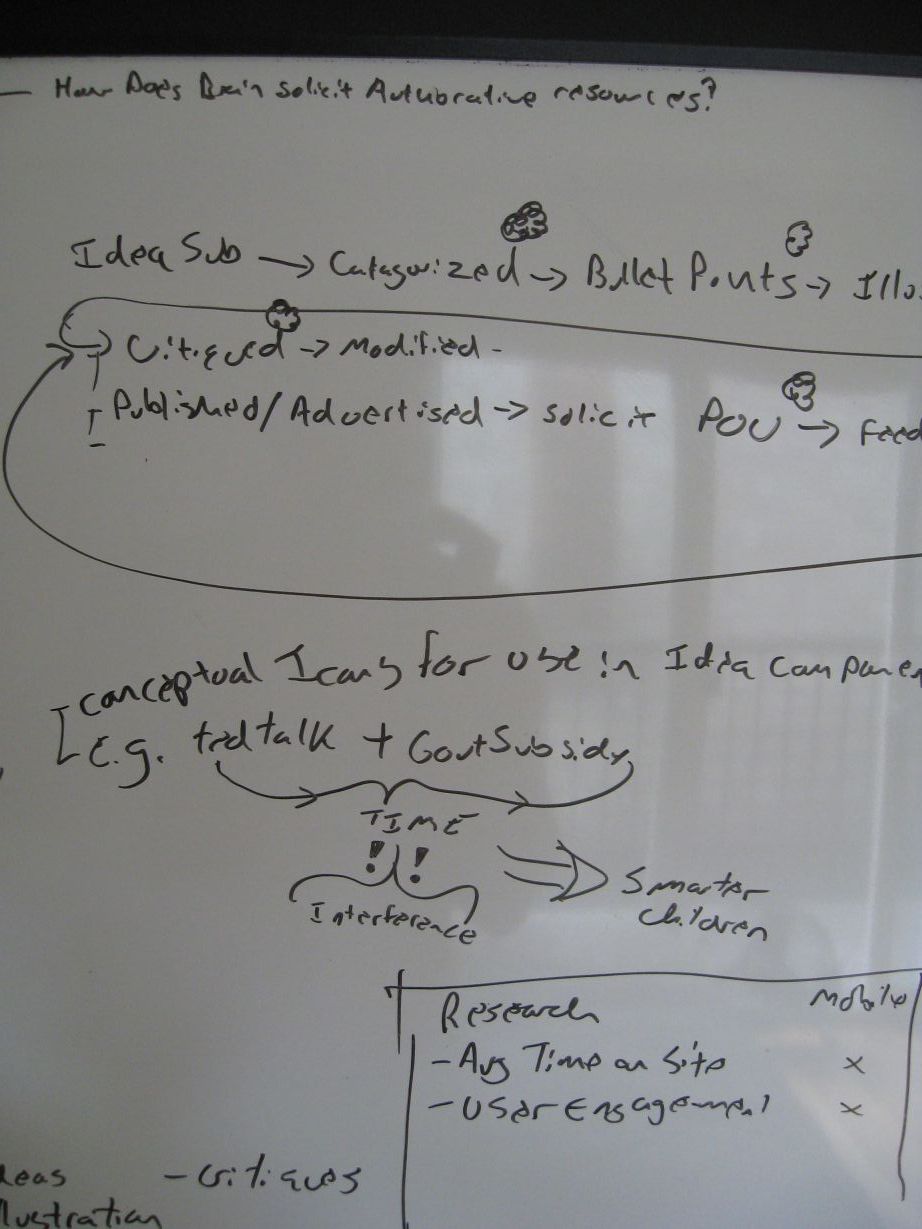 — How Does Brain solicit Authorative resources?
Idea Sub → Categorized → Bullet Points → Illus
→ Critiqued → Modified -
Published/Advertised → solicit POV → Feed
conceptual Icons for use in Idea componen
E.g. ted talk + Govt Subsidy
TIME
! !
Interference
Smarter
children
Research Mobile
- Avg Time on Site x
- User Engagement x
deas - critiques
llustration